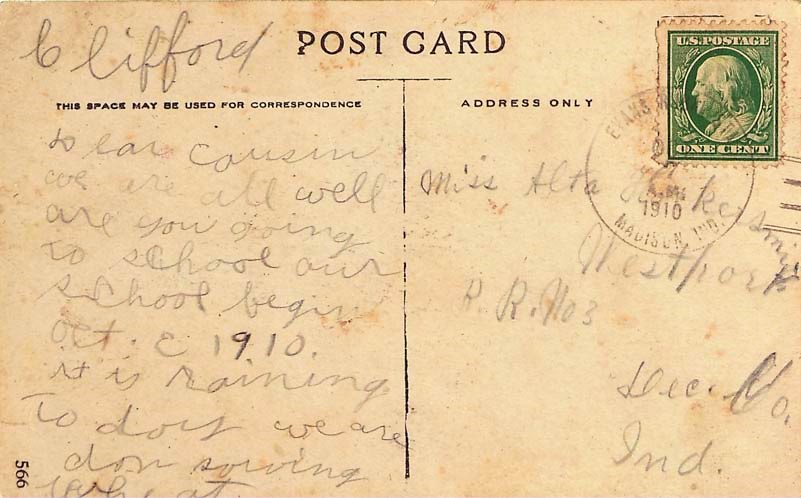 Clifford
POST CARD
THIS SPACE MAY BE USED FOR CORRESPONDENCE
ADDRESS ONLY
U.S. POSTAGE
ONE CENT
EVANS
A.M.
1910
MADISON, IND.
Dear cousin
we are all well
are you going
to school our
school begin
oct. 1910.
it is raining
to doiy we are
don sowing
Wheat
566
Miss Alta
Westport
R. R. No 3
Dec. Co.
Ind.